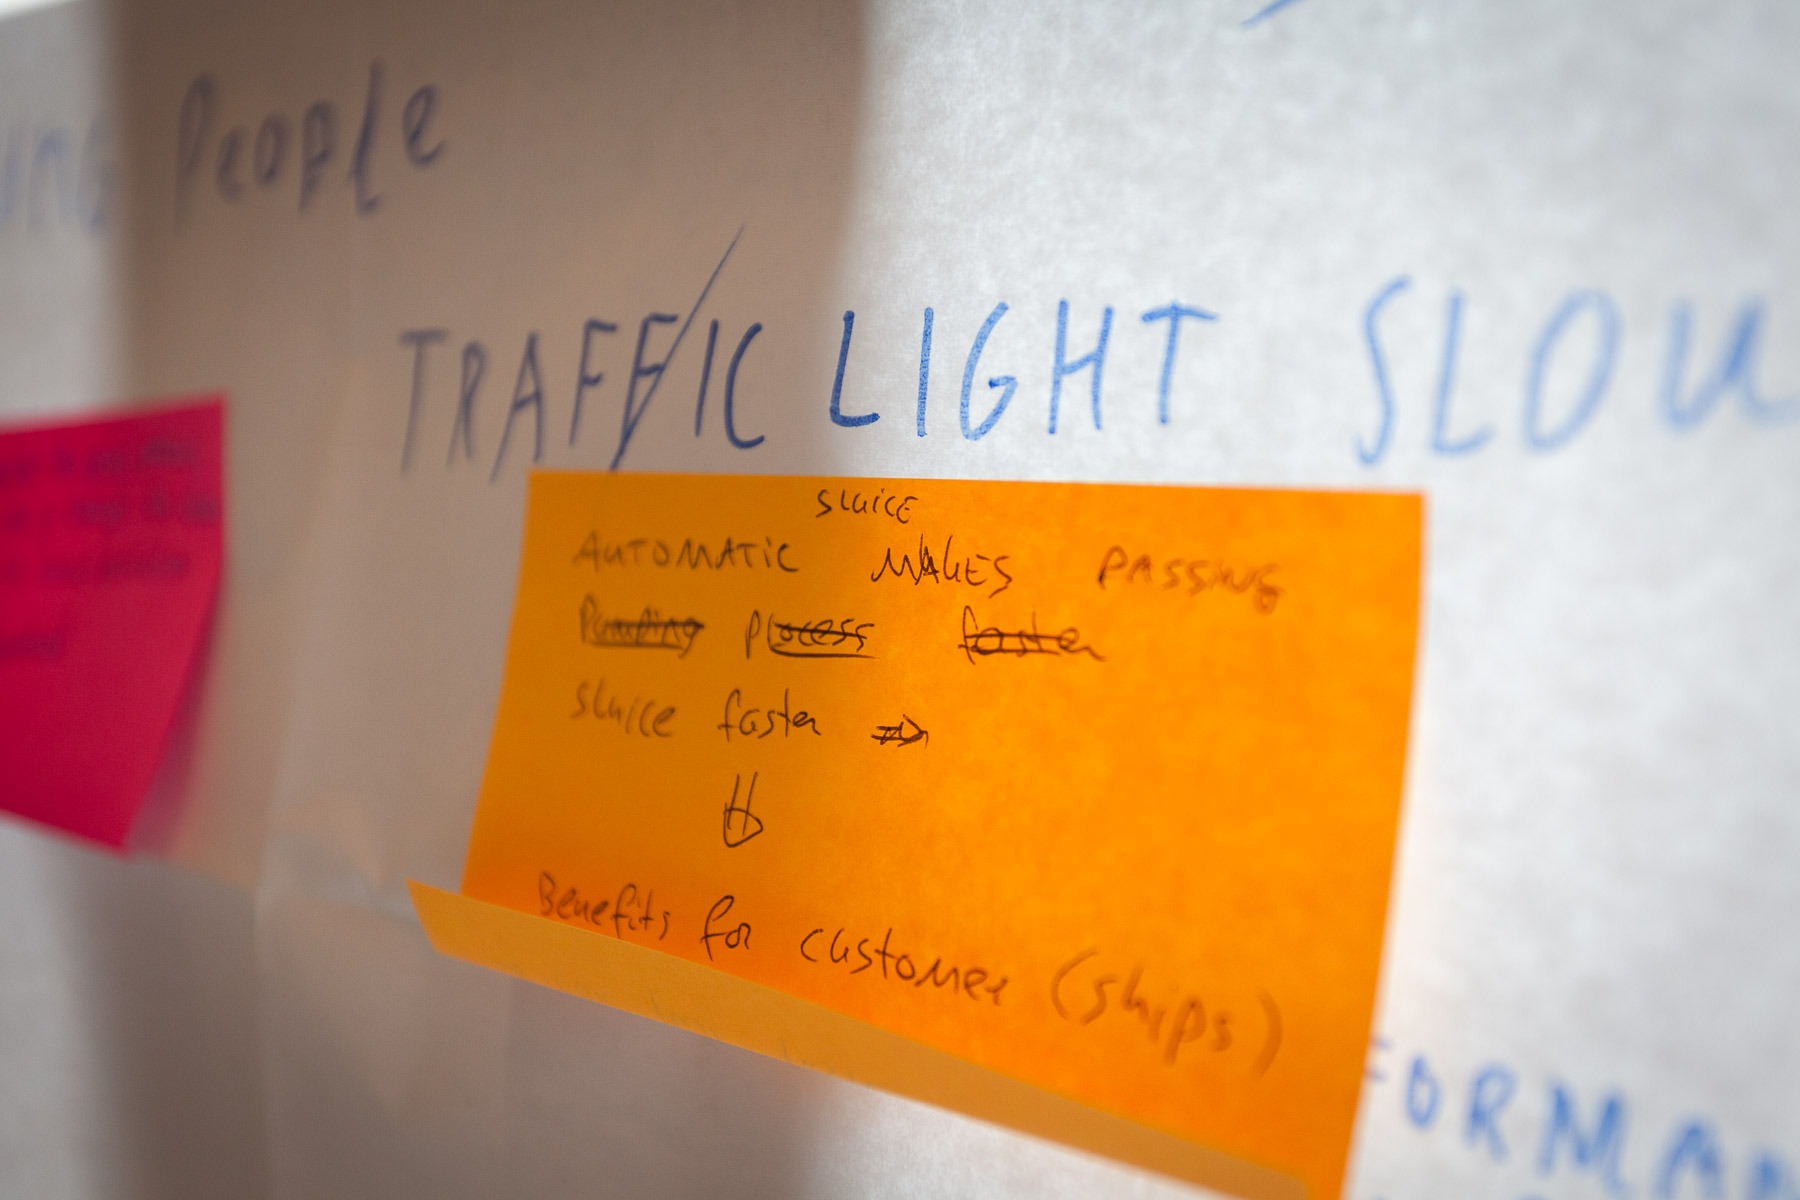 People
TRAFFIC LIGHT SLOW
SLUiCE
AUTOMATiC MAKES PASSING
process faster
sluice faster ⇒
⇓
Benefits for customer (ships)
FORMAN